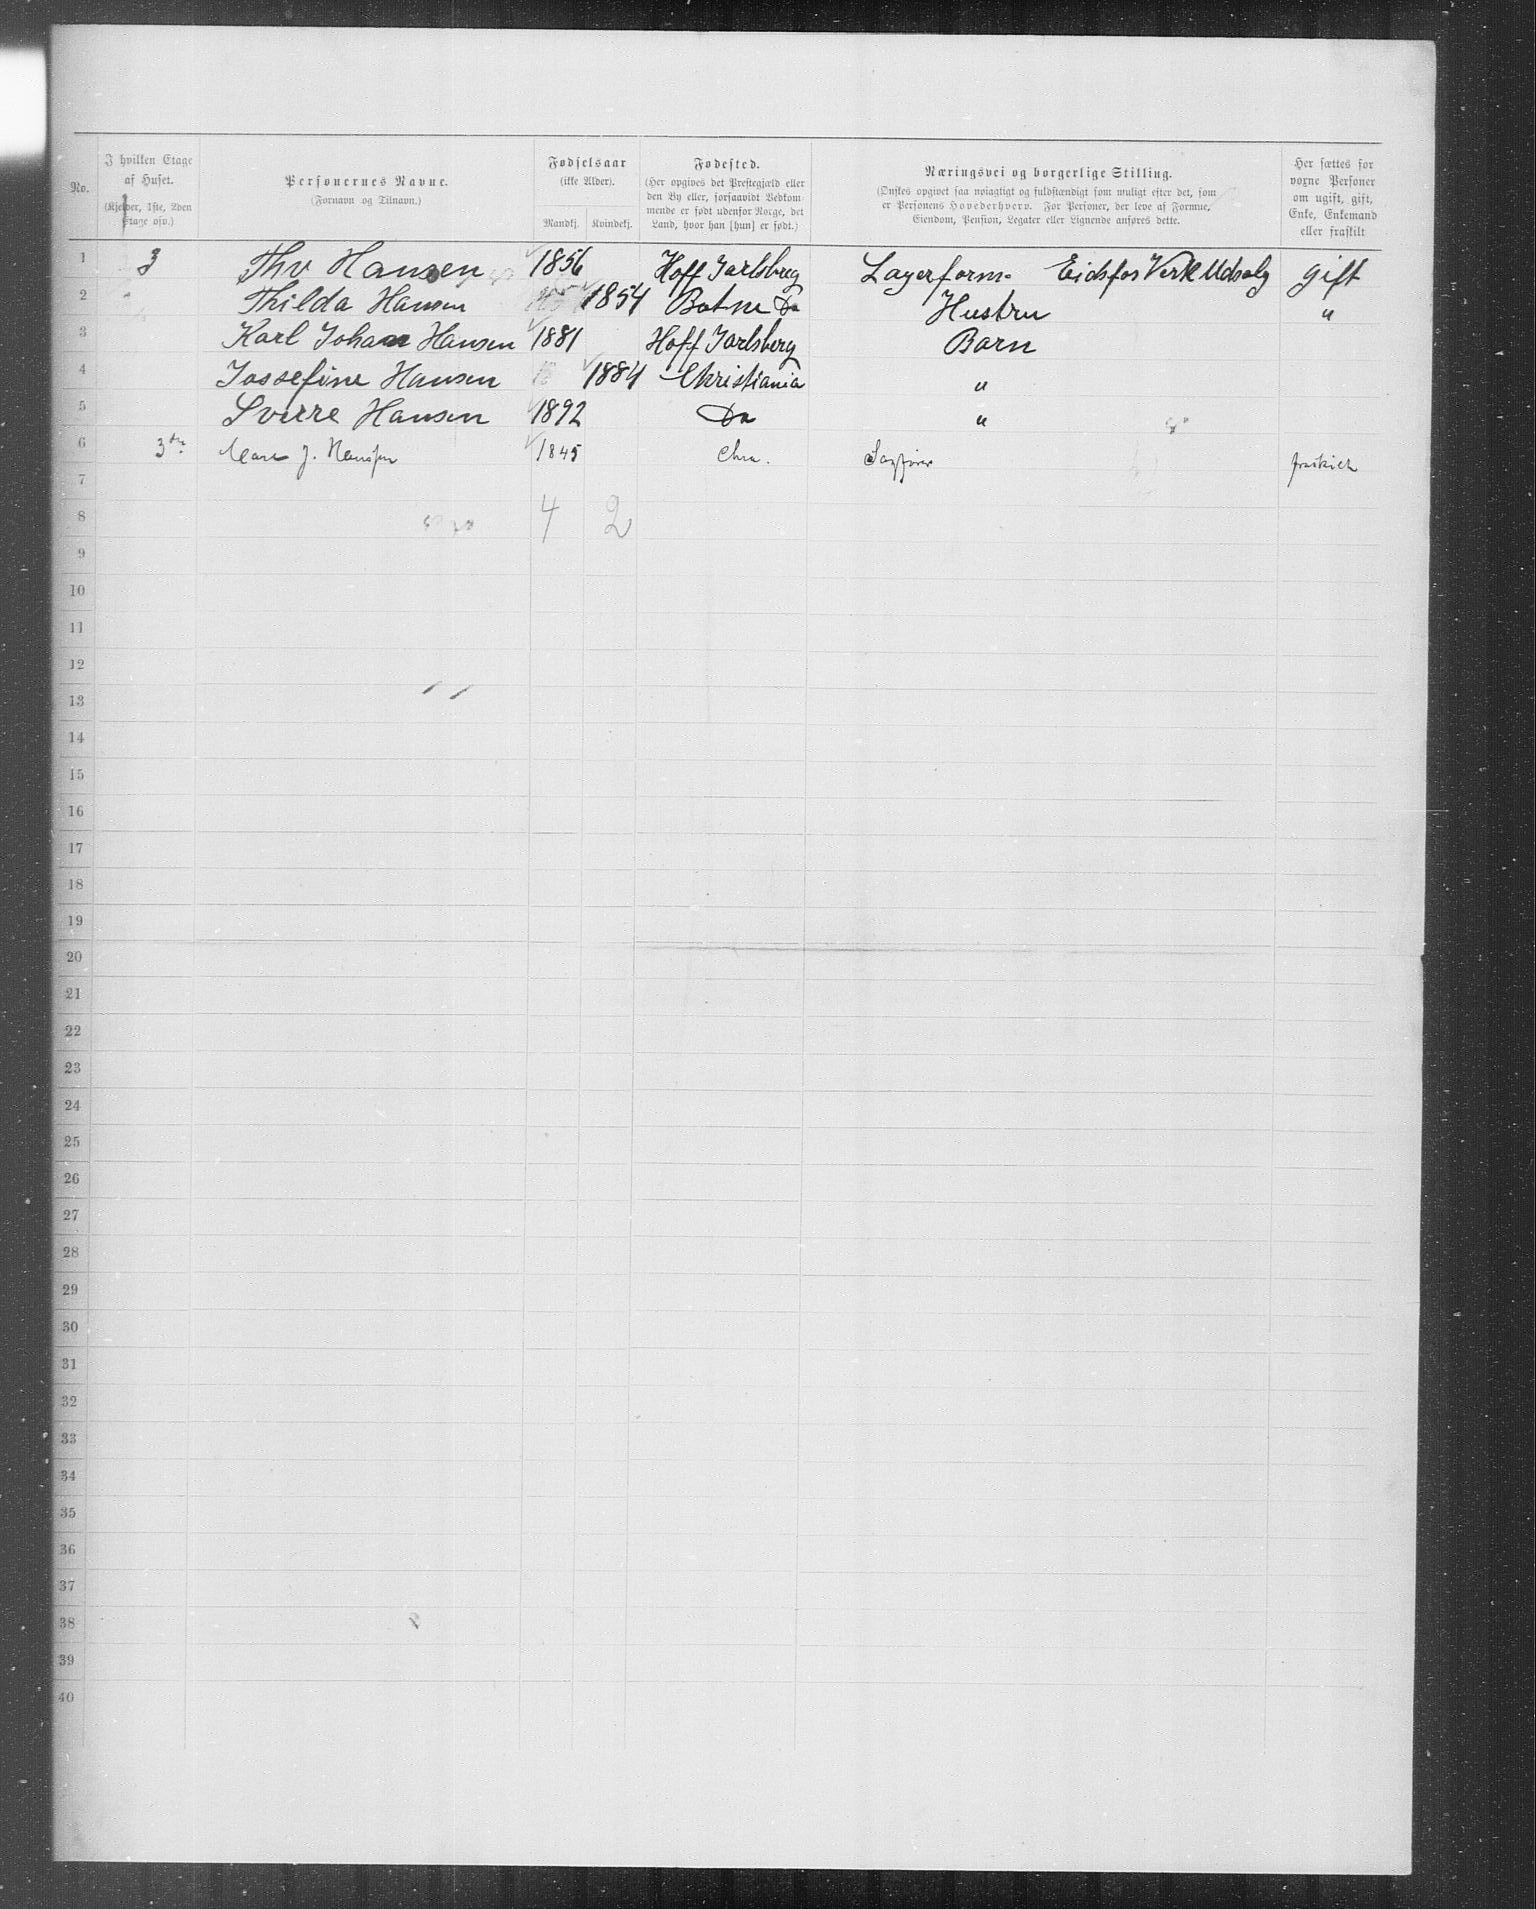 No.
I hvilken Etage af Huset.
(Kjelder, 1ste, 2den Etage osv.)
Personernes Navne.
(Fornavn og Tilnavn.)
Fødselsaar
(ikke Alder).
Mandkj. Kvindekj.
Fødested.
(Her opgives det Prestegjæld eller
den By eller, forsaavidt Vedkom-
mende er født udenfor Norge, det
Land, hvor han [hun] er født.)
Næringsvei og borgerlige Stilling.
(Ønskes opgivet saa nøiagtigt og fuldstændigt som muligt efter det, som
er Personens Hovederhverv. For Personer, der leve af Formue,
Eiendom, Pension, Legater eller Lignende anføres dette.
Her sættes for
voxne Personer
om ugift, gift,
Enke, Enkemand
eller fraskilt
1 3 Thv Hansen 1856 Hoff Jarlsbreg Lagerform. Eidsfos Verk Udsalg gift
2 " Thilda Hansen 1854 Botne Do Hustru "
3 Karl Johan Hansen 1881 Hoff Jarlsberg Barn
4 Jossefine Hansen 1884 Christiania "
5 Sverre Hansen 1892 Do "
6 3die J. 1845 Chra. Sagfører fraskilt
7
8 4 2
9
10
11
12
13
14
15
16
17
18
19
20
21
22
23
24
25
26
27
28
29
30
31
32
33
34
35
36
37
38
39
40